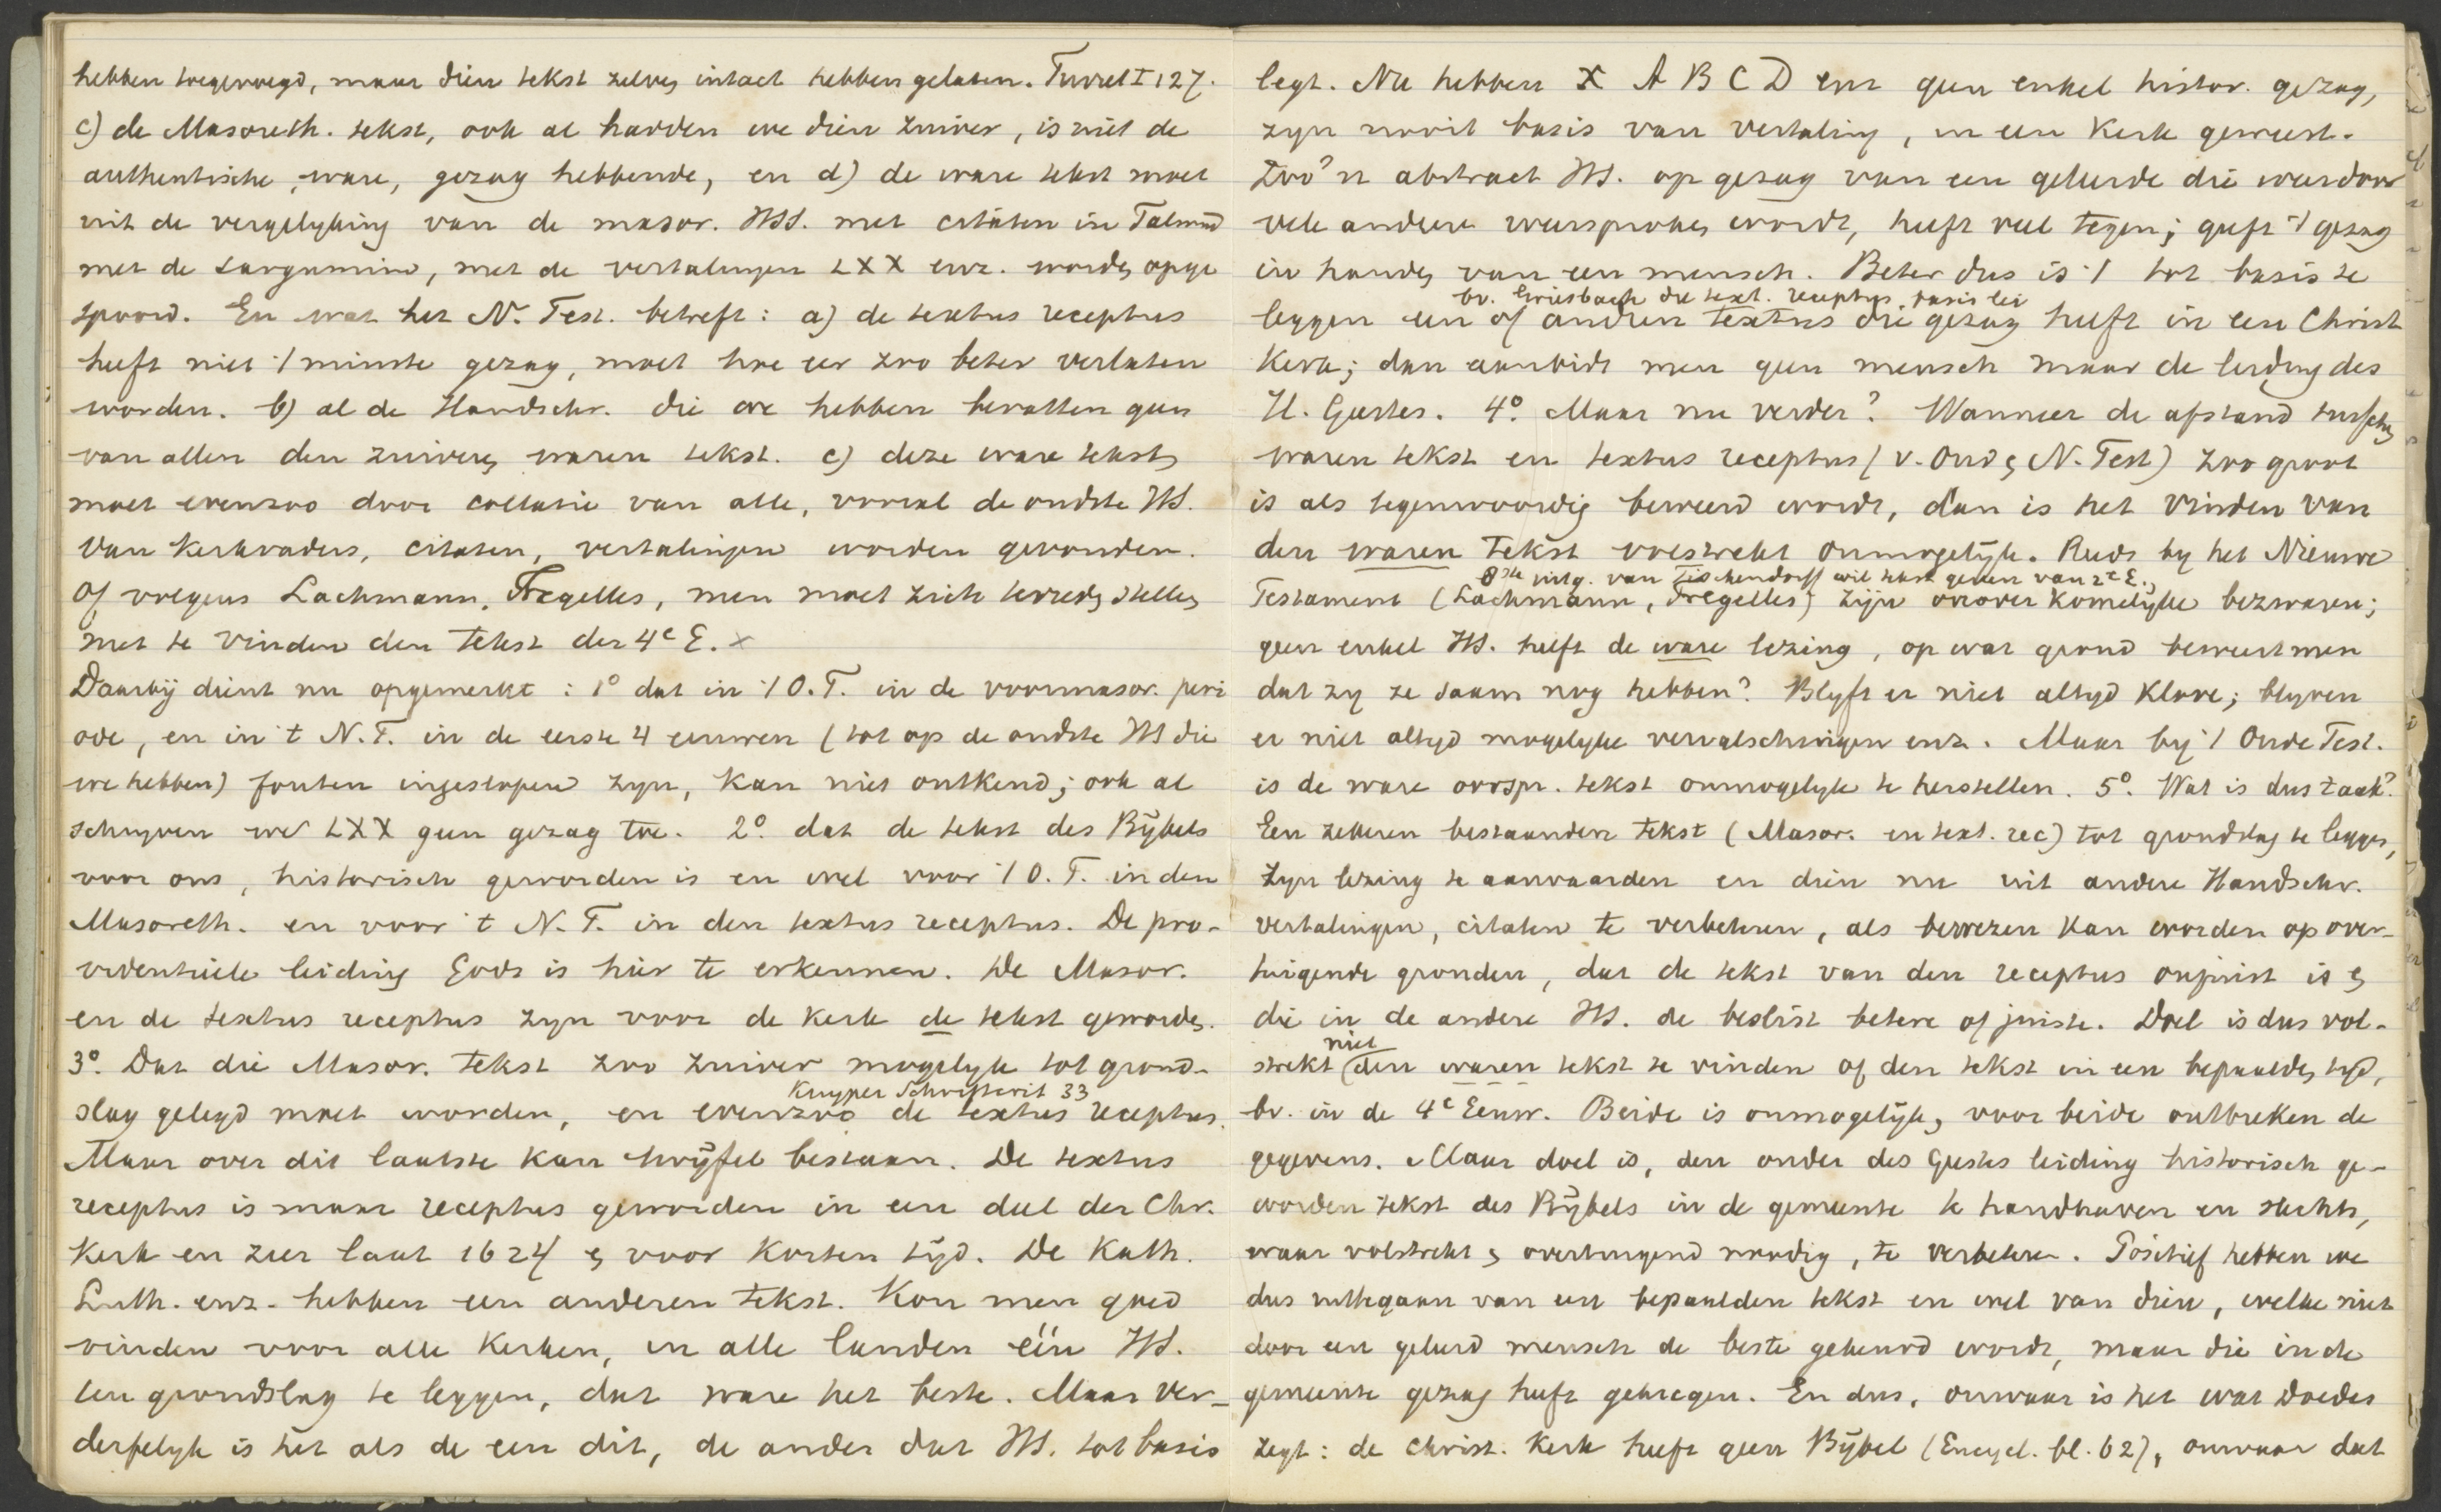 hebben toegevoegd, maar dien tekst zelven intact hebben gelaten. Turret I 127.
c) de Masoreth. tekst, ook al hadden we dien zuiver, is niet de
authentische, ware, gezag hebbende, en d) de ware tekst moet
uit de vergelyking van de masor. HSS. met citaten in Talmud
met de targumim, met de vertalingen LXX enz. worden opge
spoord. En wat het N. Test. betreft: a) de textus receptus
heeft niet 't minste gezag, moet hoe eer zoo beter verlaten
worden. b) al de Handschr. die we hebben bevatten geen
van allen den zuiveren waren tekst. c) deze ware tekst
moet evenzoo door collatie van alle, vooral de oudste HS.
van Kerkvaders, citaten, vertalingen worden gevonden.
Of volgens Lachmann, Tregelles, men moet zich tevreden stellen
met te vinden den tekst der 4e E. x
Daarbij dient nu opgemerkt: 1° dat in 't O.T. in de voormasor. peri
ode, en in 't N.T. in de eerste 4 eeuwen (tot op de oudste HS die
we hebben) fouten ingeslopen zyn, kan niet ontkend; ook al
schryven we LXX geen gezag toe. 2° dat de tekst des Bijbels
voor ons, historisch geworden is en wel voor 't O.T. in den
Masoreth. en voor 't N.T. in den textus receptus. De pro-
videntieele leiding Gods is hier te erkennen. De Masor.
en de textus receptus zyn voor de Kerk de tekst geworden.
3° Dat die Masor. tekst zoo zuiver mogelyk tot grond-
Kuyper Schriftcrit 33
slag gelegd moet worden, en evenzoo de textus receptus.
Maar over dit laatste kan twijfel bestaan. De textus
receptus is maar receptus geworden in een deel der Chr.
Kerk en zeer laat 1624 en voor korten tijd. De Kath.
Luth. enz. hebben een anderen tekst. Kon men goed
vinden voor alle Kerken, in alle landen één HS.
ten grondslag te leggen, dat ware het beste. Maar ver-
derfelyk is het als de een dit, de ander dat HS. tot basis
legt. Nu hebben א A B C D enz geen enkel histor. gezag,
zyn nooit basis van vertaling, in een Kerk geweest.
Zoo'n abstract HS. op gezag van een geleerde die weer door
vele andere weersproken wordt, heeft veel tegen; geeft 't gezag
in handen van een mensch. Beter dus is 't tot basis te
bv. Griesbach die text. receptus basis lei
leggen een of anderen textus die gezag heeft in een Christ
Kerk; dan aanbidt men geen mensch maar de leiding des
H. Geestes. 4° Maar nu verder? Wanneer de afstand tusschen
waren tekst en textus receptus (v. Oud en N. Test) zoo groot
is als tegenwoordig beweerd wordt, dan is het vinden van
den waren tekst volstrekt onmogelijk. Reeds by het Nieuwe
8ste uitg. van Tischendorff wil tekst geven van 2e E.
Testament (Lachmann, Tregelles) zijn onoverkomelijke bezwaren;
geen enkel HS. heeft de ware lezing, op wat grond beweert men
dat zy ze saam nog hebben? Blyft er niet altyd klove; blyven
er niet altyd mogelyke vervalschingen enz. Maar by 't Oude Test.
is de ware oorspr. tekst onmogelyk te herstellen. 5° Wat is dus taak?
Een zekeren bestaanden tekst (Masor. en text. rec) tot grondslag te leggen,
zyn lezing te aanvaarden en dien nu uit andere Handschr.
vertalingen, citaten te verbeteren, als bewezen kan worden op over-
tuigende gronden, dat de tekst van den receptus onjuist is en
die in de andere HS. de beslist betere of juiste. Doel is dus vol-
niet
strekt den waren tekst te vinden of den tekst in een bepaalden tyd,
bv. in de 4e Eeuw. Beide is onmogelijk, voor beide ontbreken de
gegevens. Maar doel is, den onder des Geestes leiding historisch ge-
worden tekst des Bijbels in de gemeente te handhaven en slechts,
waar volstrekt en overtuigend noodig, te verbeteren. Positief hebben we
dus uittegaan van een bepaalden tekst en wel van dien, welke niet
door een geleerd mensch de beste gekeurd wordt, maar die in de
gemeente gezag heeft gekregen. En dus, onwaar is het wat Doedes
zegt: de Christ. Kerk heeft geen Bijbel (Encycl. bl. 62), onwaar dat